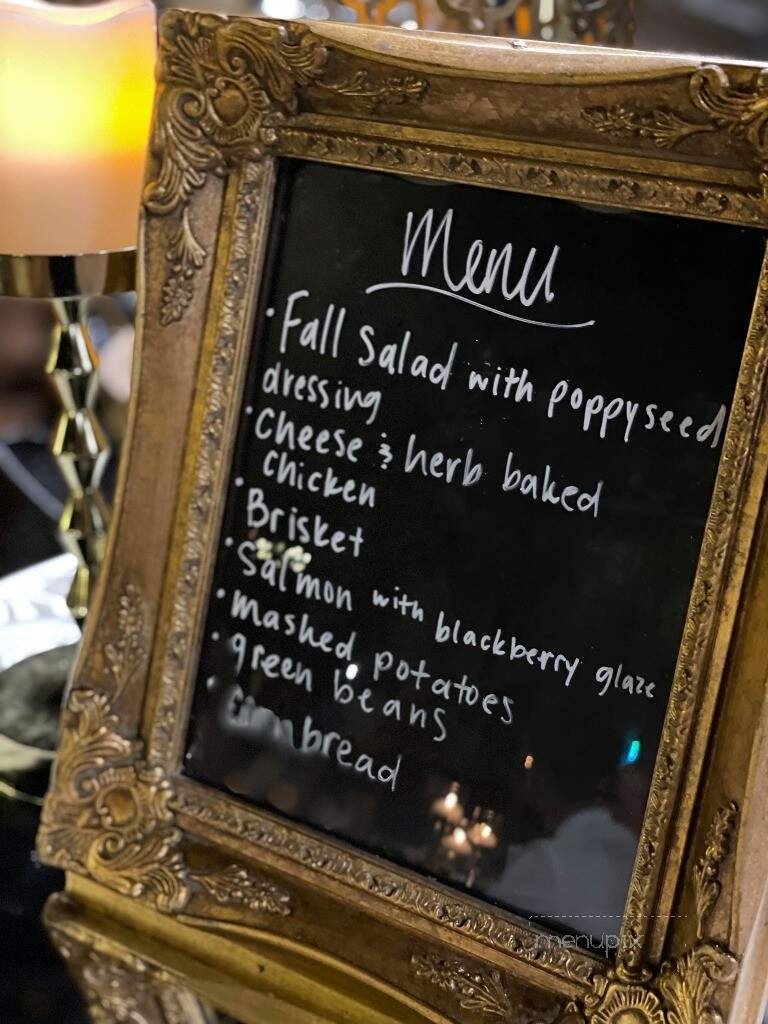 Menu
· Fall Salad with poppyseed
dressing
· Cheese & herb baked
chicken
· Brisket
· Salmon with blackberry glaze
· mashed potatoes
· green beans
· Corn bread
menupix